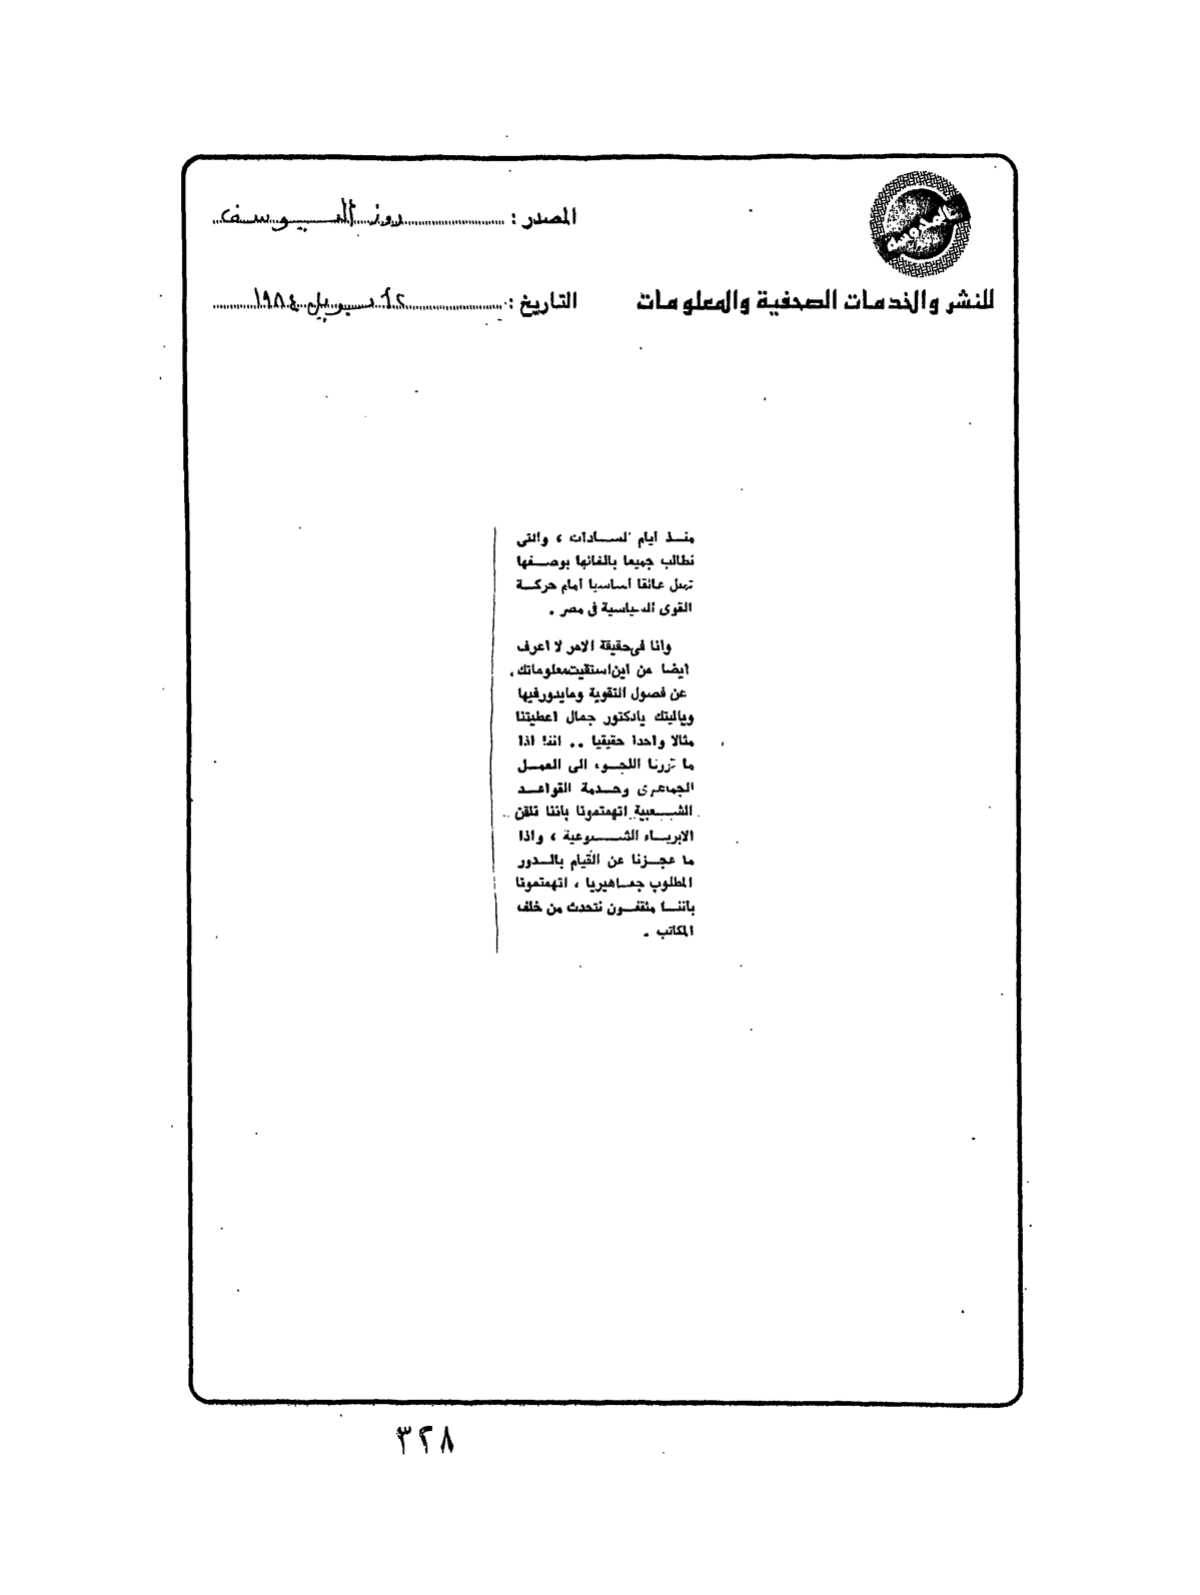 المصدر : روز اليوسف
للنشر والخدمات الصحفية والمعلومات
التاريخ : ١٩٨٤
منذ ايام السادات ، والتى
نطالب جميعا بالغائها بوصفها
تمثل عائقا أساسيا أمام حركة
القوى السياسية فى مصر .
وأنا فى حقيقة الامر لا اعرف
ايضا من اين استقيت معلوماتك
عن فصول التقوية ومايدور فيها
وياليتك يادكتور جمال اعطيتنا
مثالا واحدا حقيقيا .. اننا اذا
ما قررنا اللجوء الى العمل
الجماهرى وخدمة القواعد
الشعبية اتهمتمونا بأننا نلقن
الابرياء الشيوعية ، واذا
ما عجزنا عن القيام بالدور
المطلوب جماهيريا ، اتهمتمونا
بأننا مثقفون نتحدث من خلف
المكاتب .
٣٢٨